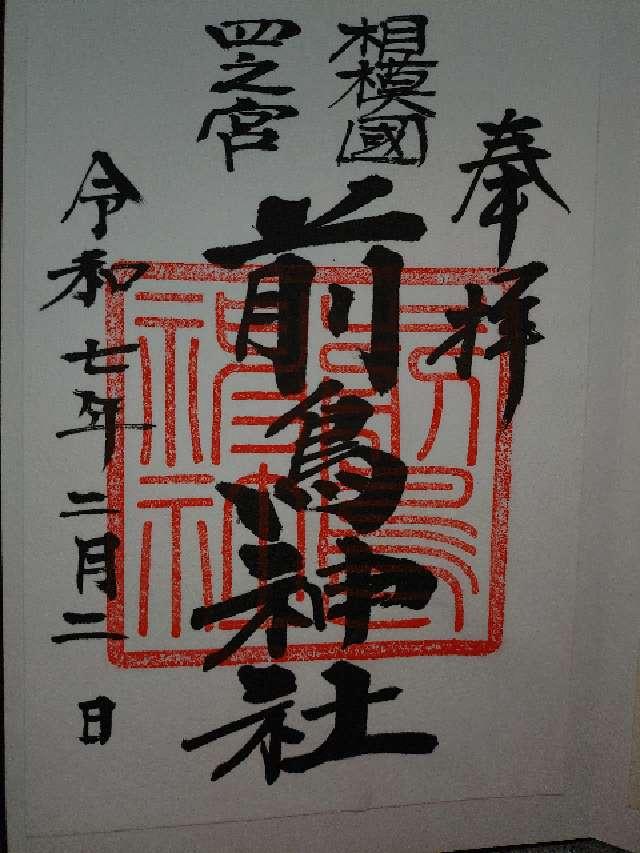 奉拝
相模國
四之宮
前鳥神社
令和七年二月二日